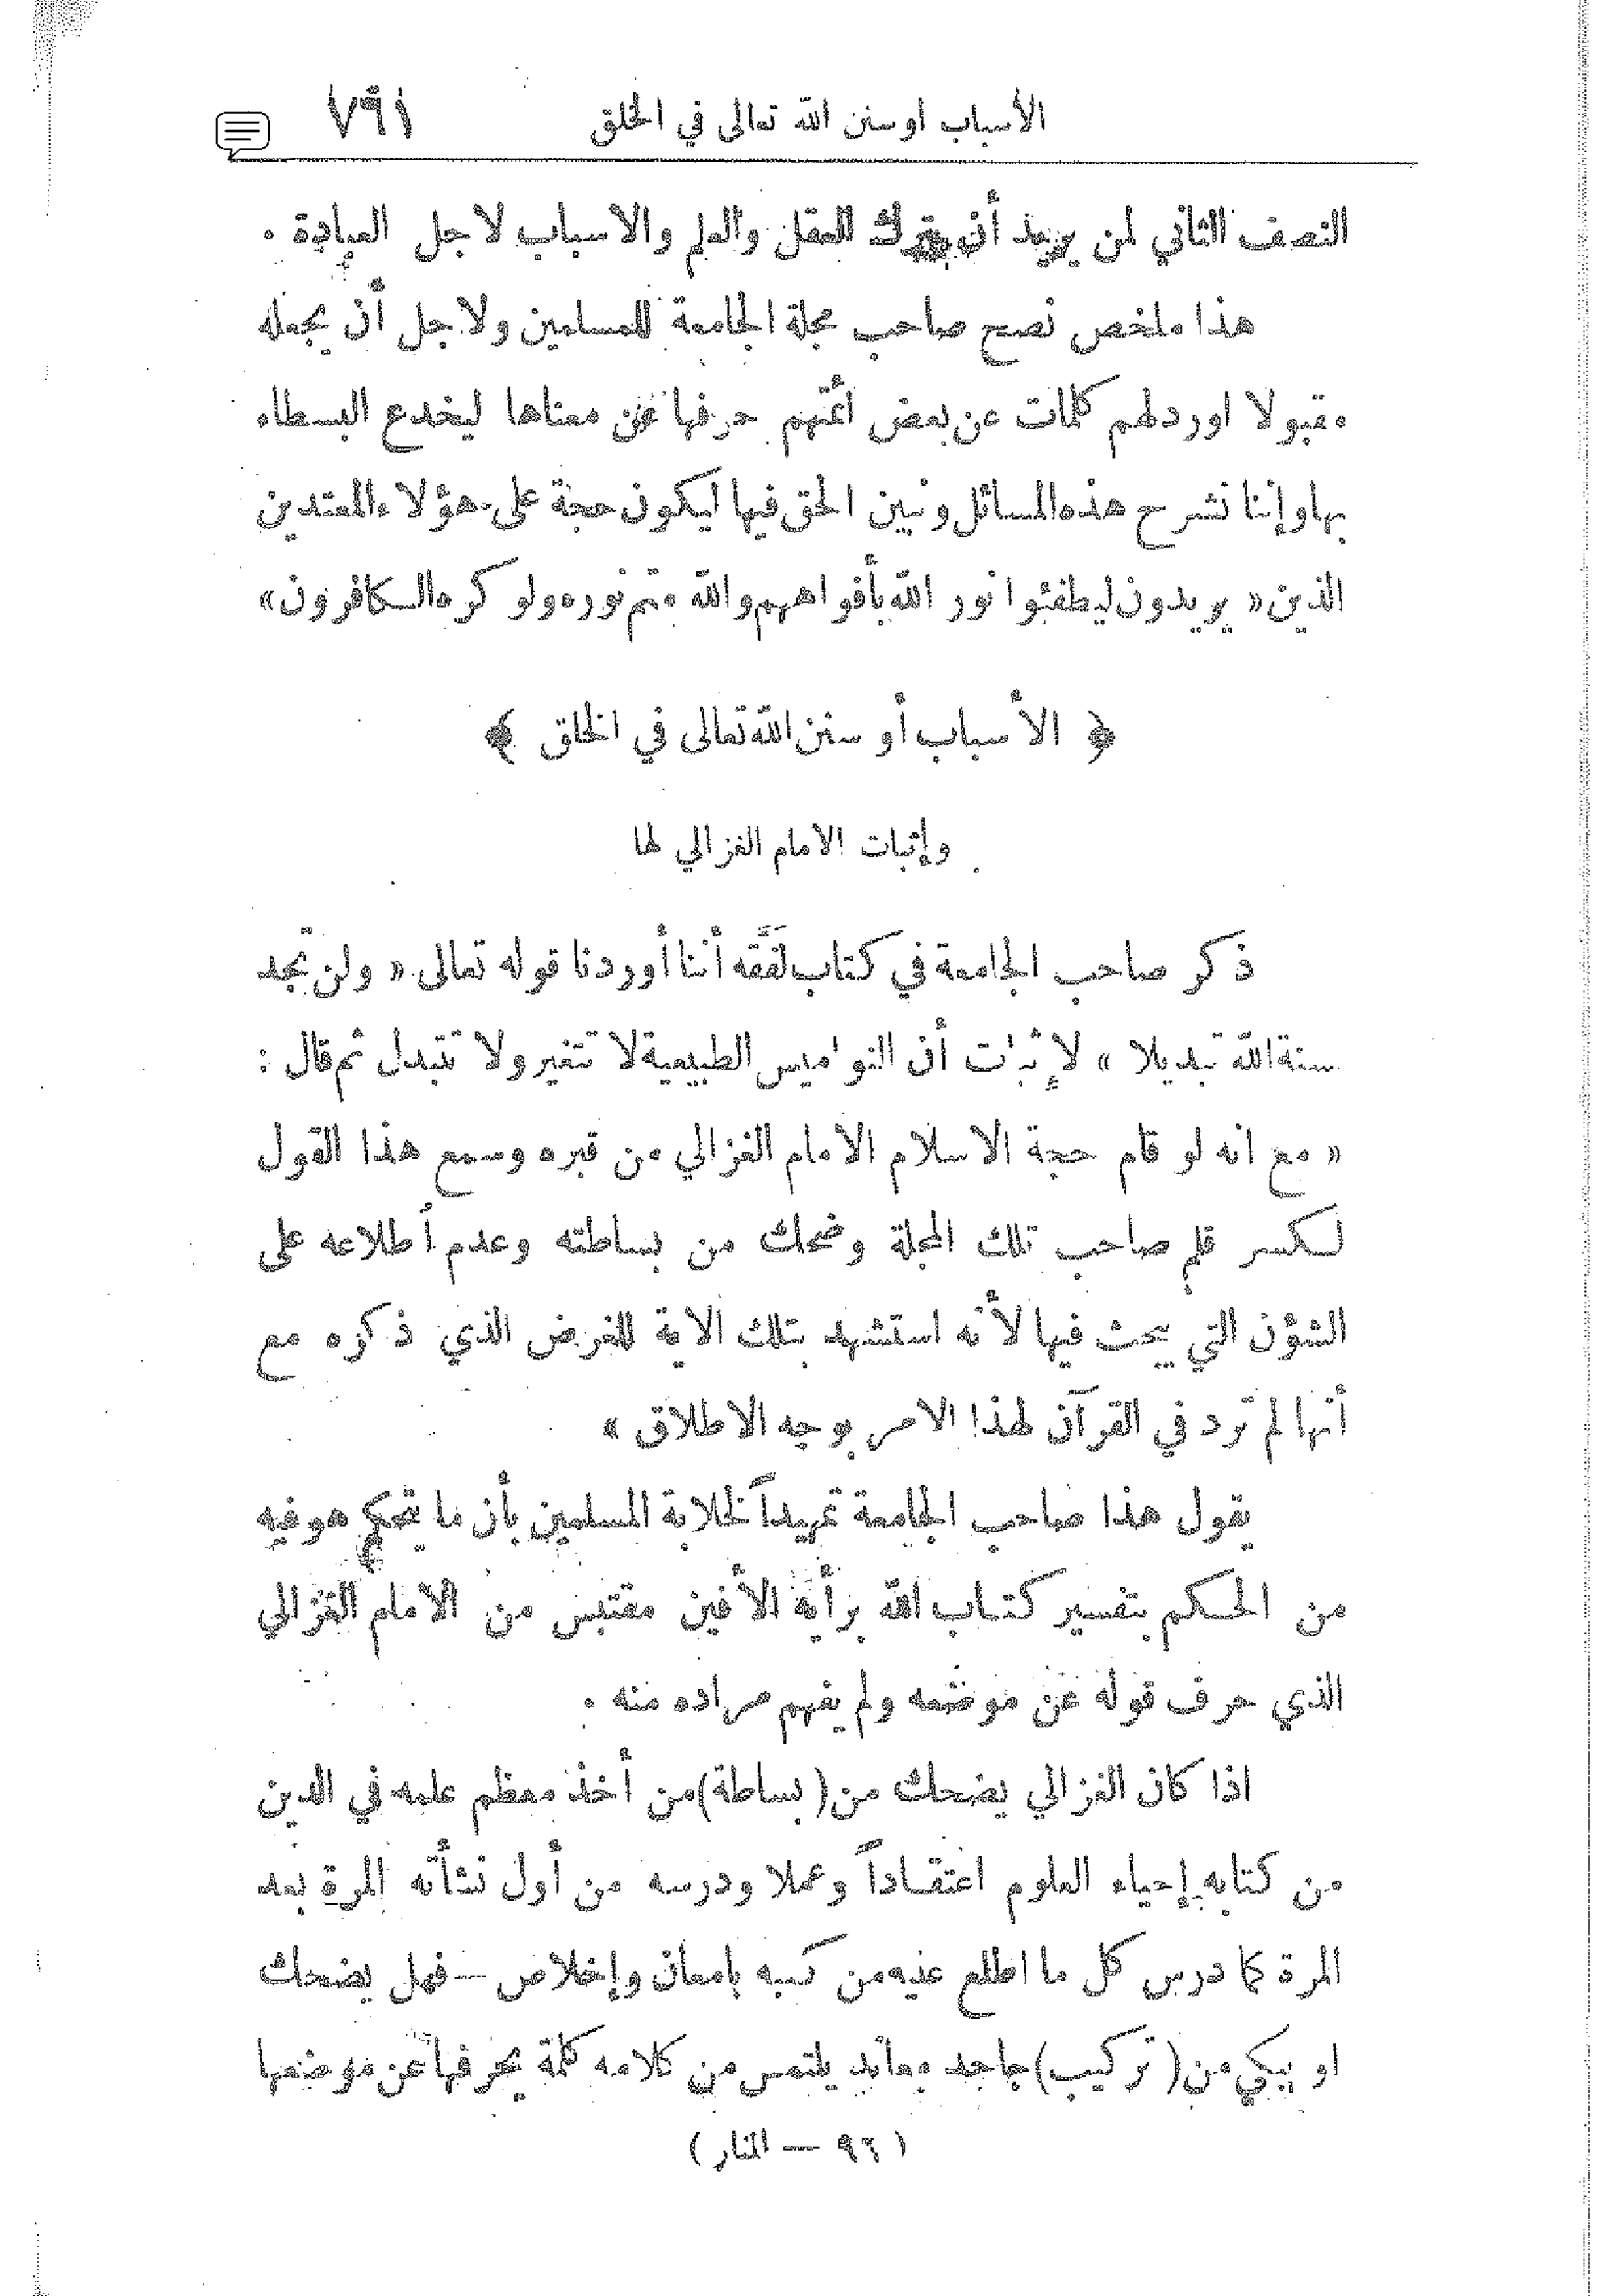 الأسباب أو سنن الله تعالى في الخلق ٧٩١
النصف الثاني لمن يريد أن يترك العقل والعلم والاسباب لاجل العبادة .
هذا ملخص نصح صاحب مجلة الجامعة للمسلمين ولاجل أن يجعله
مقبولا اورد لهم كلمات عن بعض أئمتهم حرفها عن معناها ليخدع البسطاء
بها وإننا نشرح هذه المسائل ونبين الحق فيها ليكون حجة على هؤلاء المعتدين
الذين « يريدون ليطفئوا نور الله بأفواههم والله متم نوره ولو كره الكافرون »
﴿ الأسباب أو سنن الله تعالى في الخلق ﴾
وإثبات الامام الغزالي لها
ذكر صاحب الجامعة في كتاب لفقه أننا أوردنا قوله تعالى « ولن تجد
سنة الله تبديلا » لإثبات أن النواميس الطبيعية لا تتغير ولا تتبدل ثم قال :
« مع انه لو قام حجة الاسلام الامام الغزالي من قبره وسمع هذا القول
لكسر قلم صاحب تلك المجلة وضحك من بساطته وعدم أطلاعه على
الشؤن التي يبحث فيها لأنه استشهد بتلك الاية للغرض الذي ذكره مع
أنها لم ترد في القرآن لهذا الامر بوجه الاطلاق »
يقول هذا صاحب الجامعة تمهيداً لخلابة المسلمين بأن ما يتحكم هو فيه
من الحكم بتفسير كتاب الله برأيه الأفين مقتبس من الامام الغزالي
الذي حرف قوله عن موضعه ولم يفهم مراده منه .
اذا كان الغزالي يضحك من ( بساطة ) من أخذ معظم علمه في الدين
من كتابه إحياء العلوم اعتقاداً وعملا ودرسه من أول نشأته المرة بعد
المرة كما درس كل ما اطلع عليه من كتبه بإمعان وإخلاص — فهل يضحك
او يبكي من ( تركيب ) جاحد معاند يلتمس من كلامه كلمة يحرفها عن موضعها
( ٩٦ — المنار )